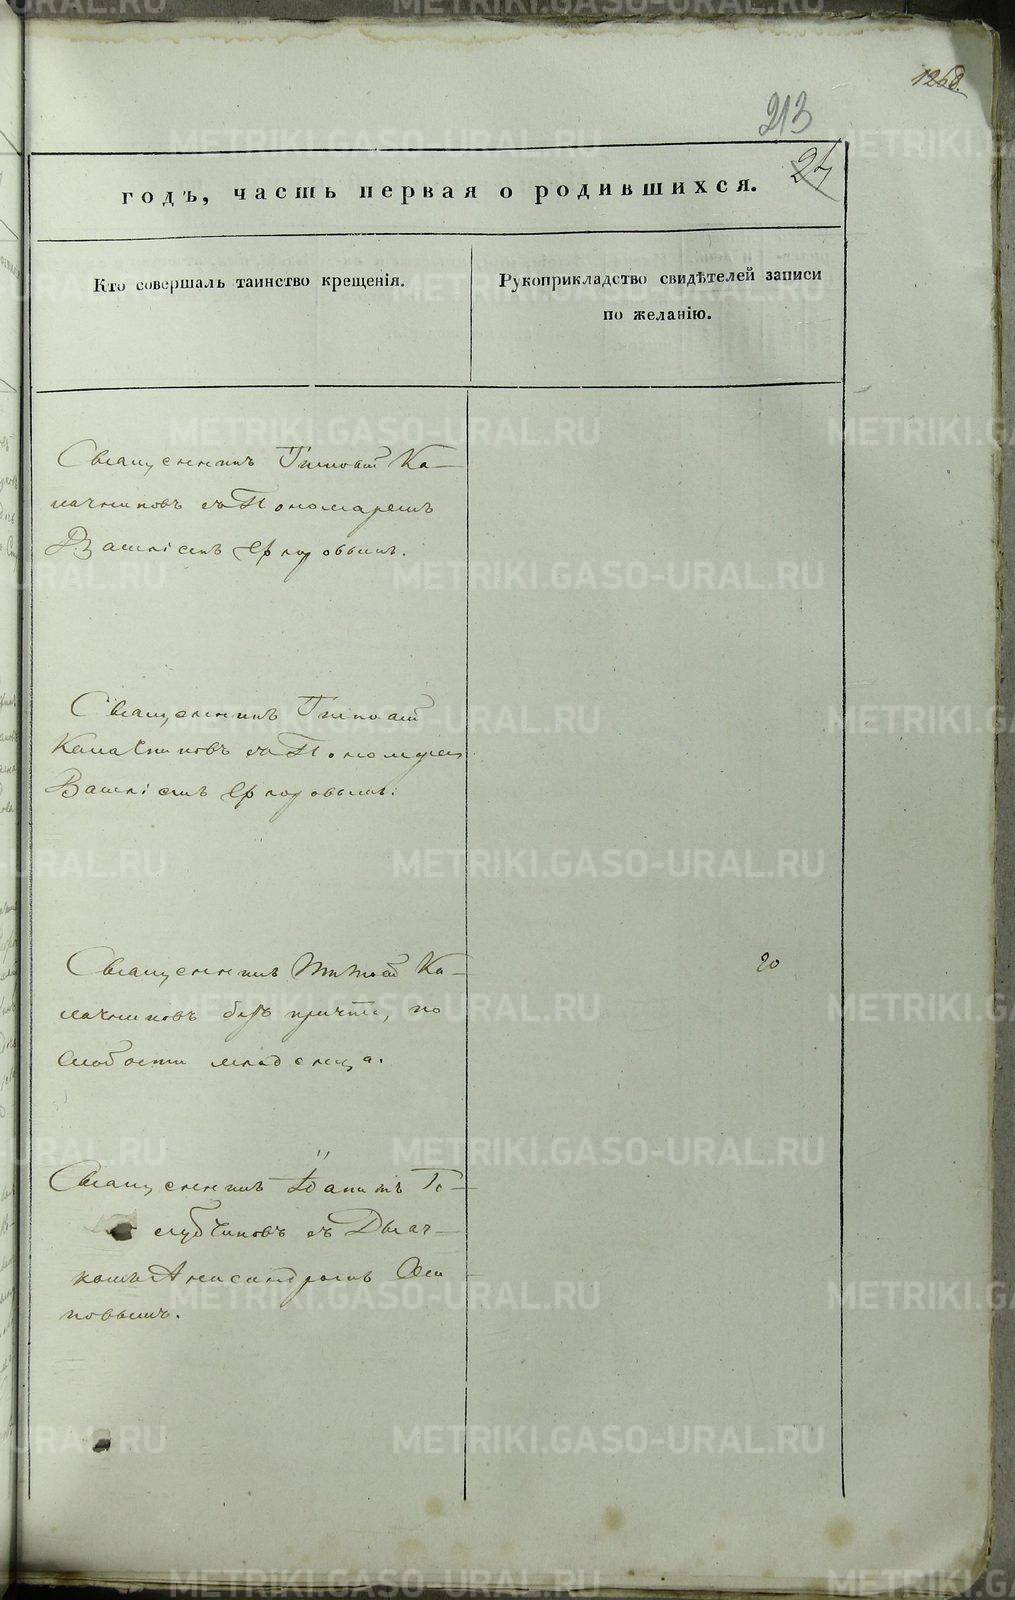 1268.
213
27
годъ, часть первая о родившихся.
Кто совершалъ таинство крещенія.
Рукоприкладство свидѣтелей записи
по желанію.
Священникъ Ка-
лачниковъ съ Пономаремъ
Ваш
Священникъ
Калачниковъ съ Пономарем
Священникъ Ка-
лачниковъ безъ причта, по
слабости младенца.
20
Священникъ Го-
лубчиковъ съ Дьяч-
комъ Александромъ Оси
повымъ.
METRIKI.GASO-URAL.RU